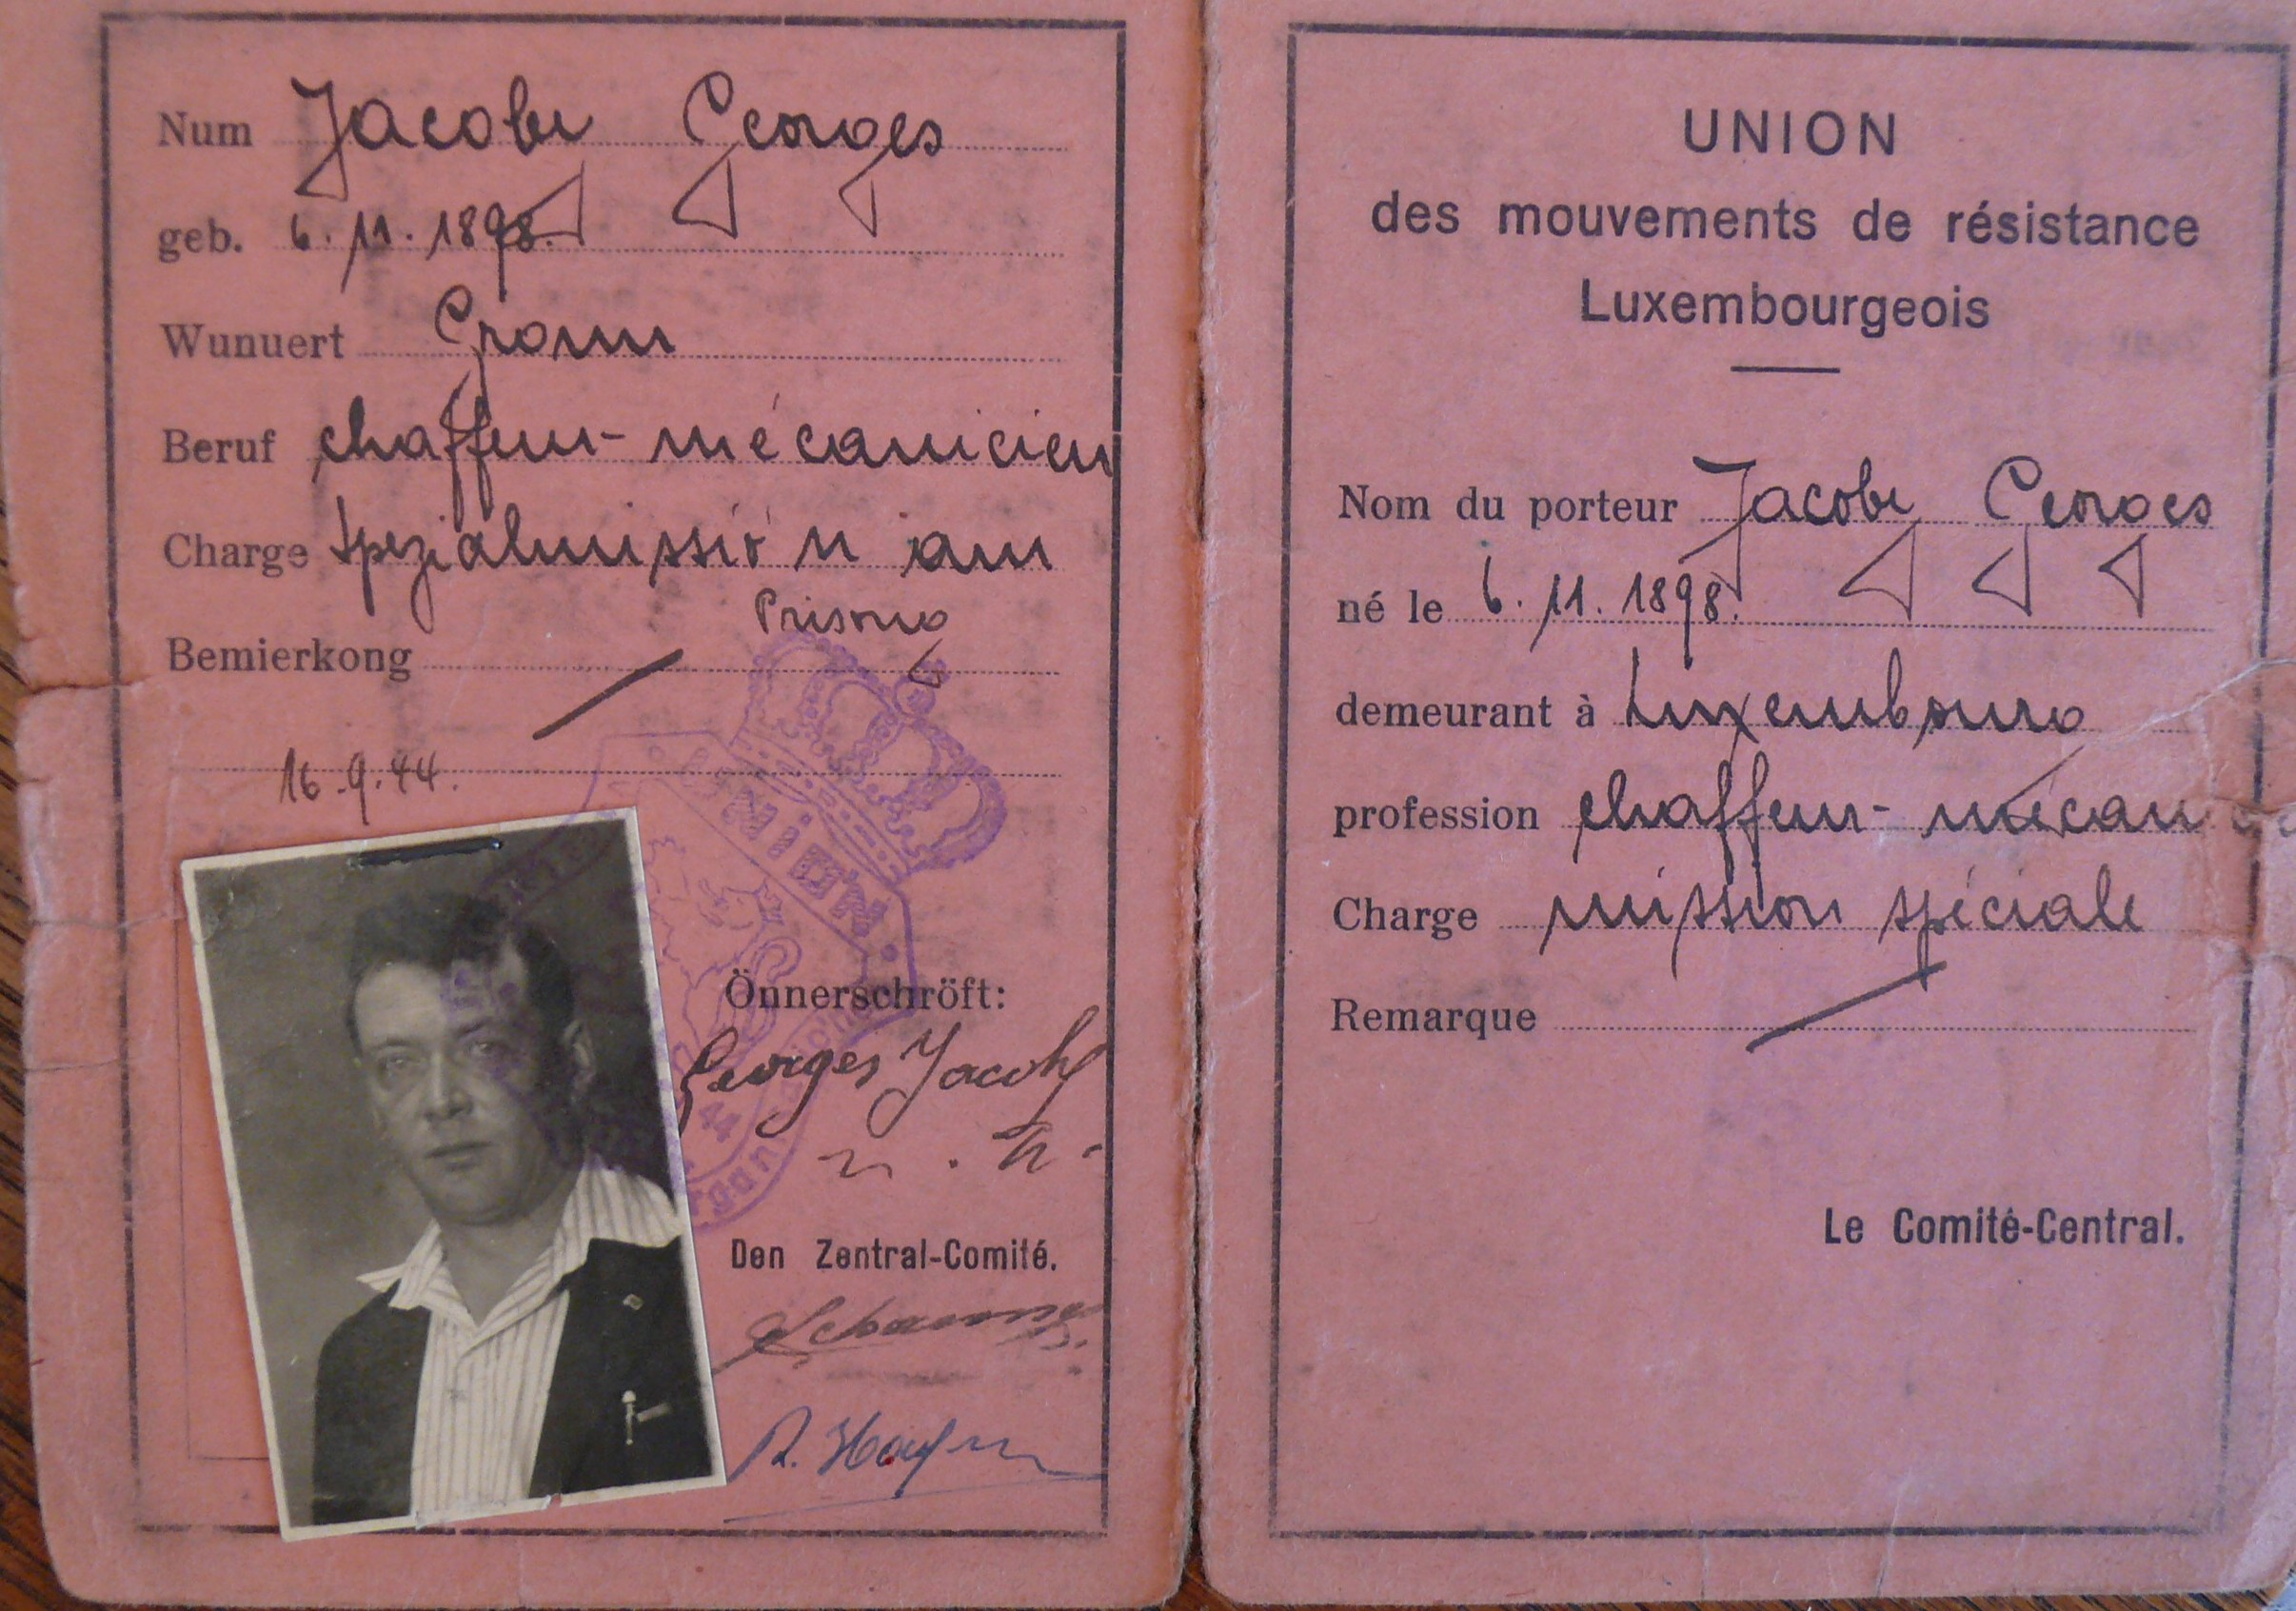 Num Jacoby Georges
geb. 6.11.1898.
Wunuert
Beruf chauffeur-mécanicien
Charge Spezialmissio'n am
Prisong
Bemierkong
16.9.44.
UNION
Önnerschröft:
Georges Jacoby
Den Zentral-Comité.
UNION
des mouvements de résistance
Luxembourgeois
Nom du porteur Jacoby Georges
né le 6.11.1898.
demeurant à Luxembourg
profession chauffeur-mécan
Charge mission spéciale
Remarque
Le Comité-Central.